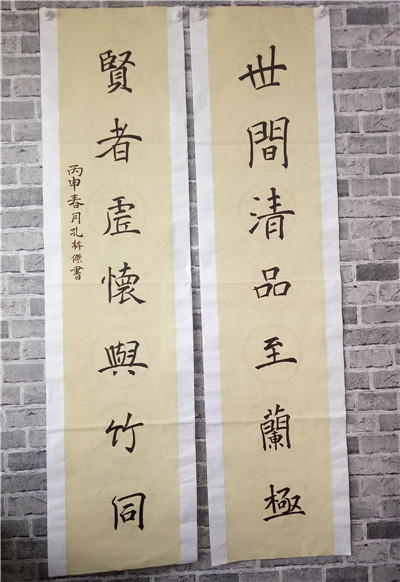 世間清品至蘭極
賢者虛懷與竹同
丙申春月孔傑書